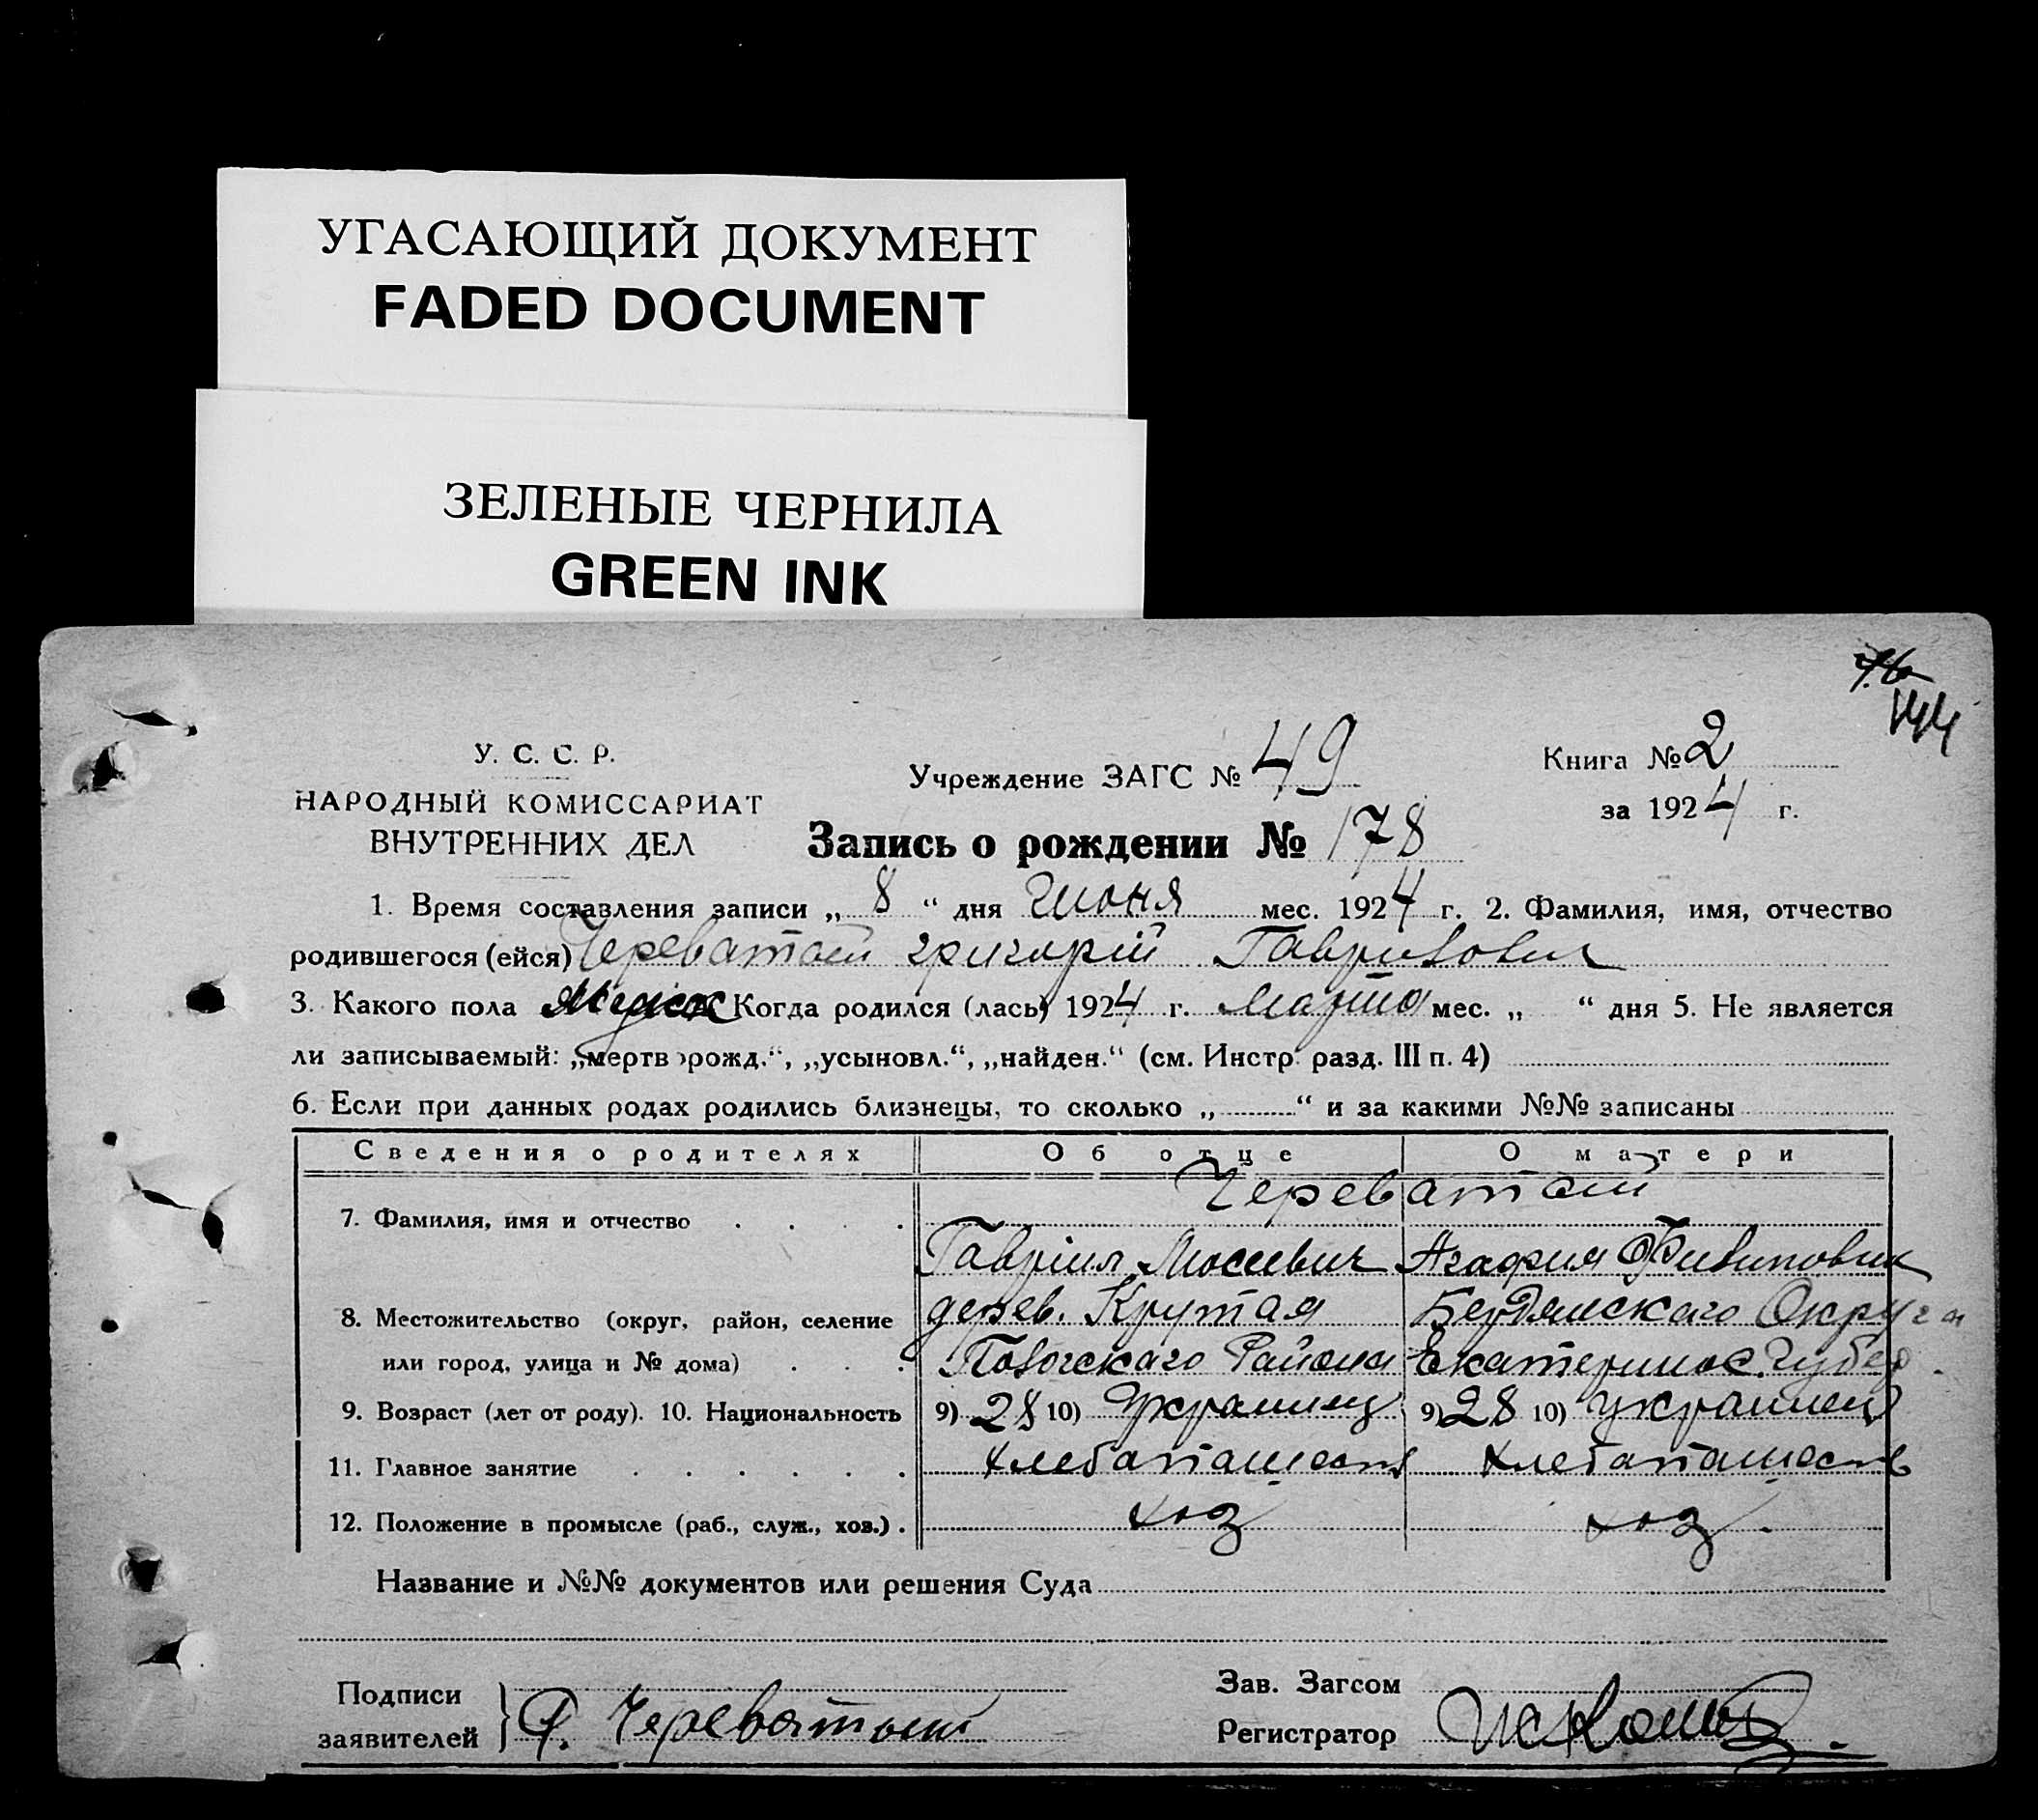 УГАСАЮЩИЙ ДОКУМЕНТ
FADED DOCUMENT
ЗЕЛЕНЫЕ ЧЕРНИЛА
GREEN INK
76
144
У. С. С. Р.
НАРОДНЫЙ КОМИССАРИАТ
ВНУТРЕННИХ ДЕЛ
Учреждение ЗАГС № 49
Книга № 2
за 1924 г.
Запись о рождении № 178
1. Время составления записи „ 8 “ дня Июня мес. 1924 г. 2. Фамилия, имя, отчество
родившегося (ейся) Череватый григорій Гаврилович
3. Какого пола Когда родился (лась) 1924 г. Марта мес. „ “ дня 5. Не является
ли записываемый: „мертворожд.“, „усыновл.“, „найден.“ (см. Инстр. разд. III п. 4)
6. Если при данных родах родились близнецы, то сколько „ “ и за какими №№ записаны
Сведения о родителях Об отце О матери
Череватый
7. Фамилия, имя и отчество
Гавріил Мосеевич Агафия Филиповна
8. Местожительство (округ, район, селение дерев. Крутая Бердянскаго Округа
или город, улица и № дома) Района Екатеринос. Губер.
9. Возраст (лет от роду). 10. Национальность 9) 28 10) Украинец 9) 28 10) Украинец
11. Главное занятие хлебопашеств хлебопашеств
12. Положение в промысле (раб., служ., хоз.) . хоз хоз.
Название и №№ документов или решения Суда
Подписи
заявителей Череватый
Зав. Загсом
Регистратор